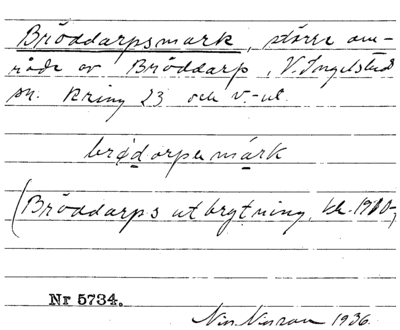 Bröddarpsmark, större om-
råde av Bröddarp, V. Ingelstad
sn. Kring 23 och v.-ut.
brødorpa márk
(Bröddarps utbrytning, kl. 1900-,
Nr 5734.
1936.